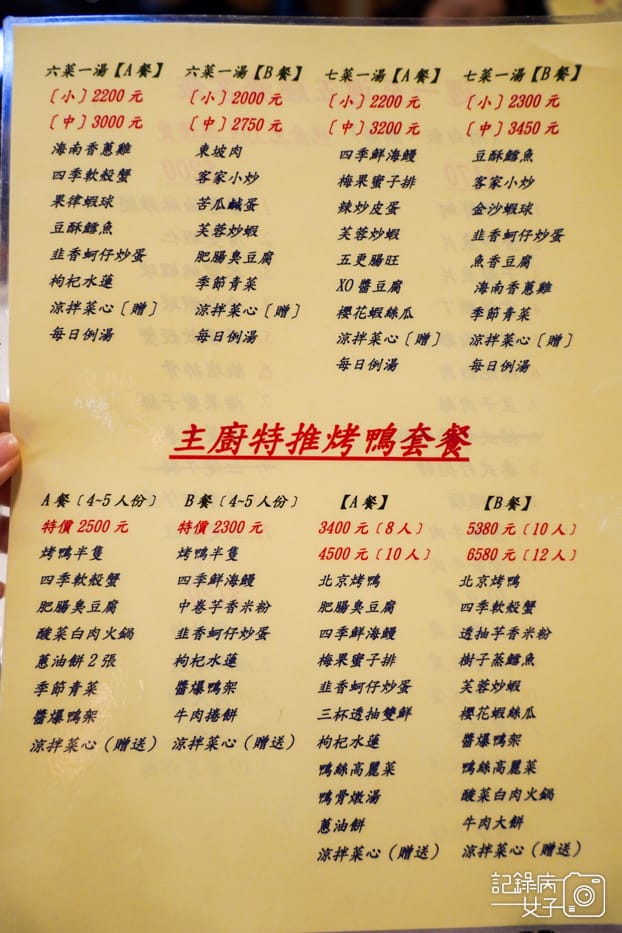 六菜一湯【A餐】
〔小〕2200元
〔中〕3000元
海南香蔥雞
四季軟殼蟹
果律蝦球
豆酥鱈魚
韭香蚵仔炒蛋
枸杞水蓮
涼拌菜心〔贈〕
每日例湯
六菜一湯【B餐】
〔小〕2000元
〔中〕2750元
東坡肉
客家小炒
苦瓜鹹蛋
芙蓉炒蝦
肥腸臭豆腐
季節青菜
涼拌菜心〔贈〕
每日例湯
七菜一湯【A餐】
〔小〕2200元
〔中〕3200元
四季鮮海鰻
梅果蜜子排
辣炒皮蛋
芙蓉炒蝦
五更腸旺
XO醬豆腐
櫻花蝦絲瓜
涼拌菜心〔贈〕
每日例湯
七菜一湯【B餐】
〔小〕2300元
〔中〕3450元
豆酥鱈魚
客家小炒
金沙蝦球
韭香蚵仔炒蛋
魚香豆腐
海南香蔥雞
季節青菜
涼拌菜心〔贈〕
每日例湯
主廚特推烤鴨套餐
A餐〔4~5人份〕
特價2500元
烤鴨半隻
四季軟殼蟹
肥腸臭豆腐
酸菜白肉火鍋
蔥油餅2張
季節青菜
醬爆鴨架
涼拌菜心（贈送）
B餐〔4~5人份〕
特價2300元
烤鴨半隻
四季鮮海鰻
中卷芋香米粉
韭香蚵仔炒蛋
枸杞水蓮
醬爆鴨架
牛肉捲餅
涼拌菜心（贈送）
【A餐】
3400元〔8人〕
4500元〔10人〕
北京烤鴨
肥腸臭豆腐
四季鮮海鰻
梅果蜜子排
韭香蚵仔炒蛋
三杯透抽雙鮮
枸杞水蓮
鴨絲高麗菜
鴨骨燉湯
蔥油餅
涼拌菜心（贈送）
【B餐】
5380元〔10人〕
6580元〔12人〕
北京烤鴨
四季軟殼蟹
透抽芋香米粉
樹子蒸鱈魚
芙蓉炒蝦
櫻花蝦絲瓜
醬爆鴨架
鴨絲高麗菜
酸菜白肉火鍋
牛肉大餅
涼拌菜心（贈送）
記錄病
女子